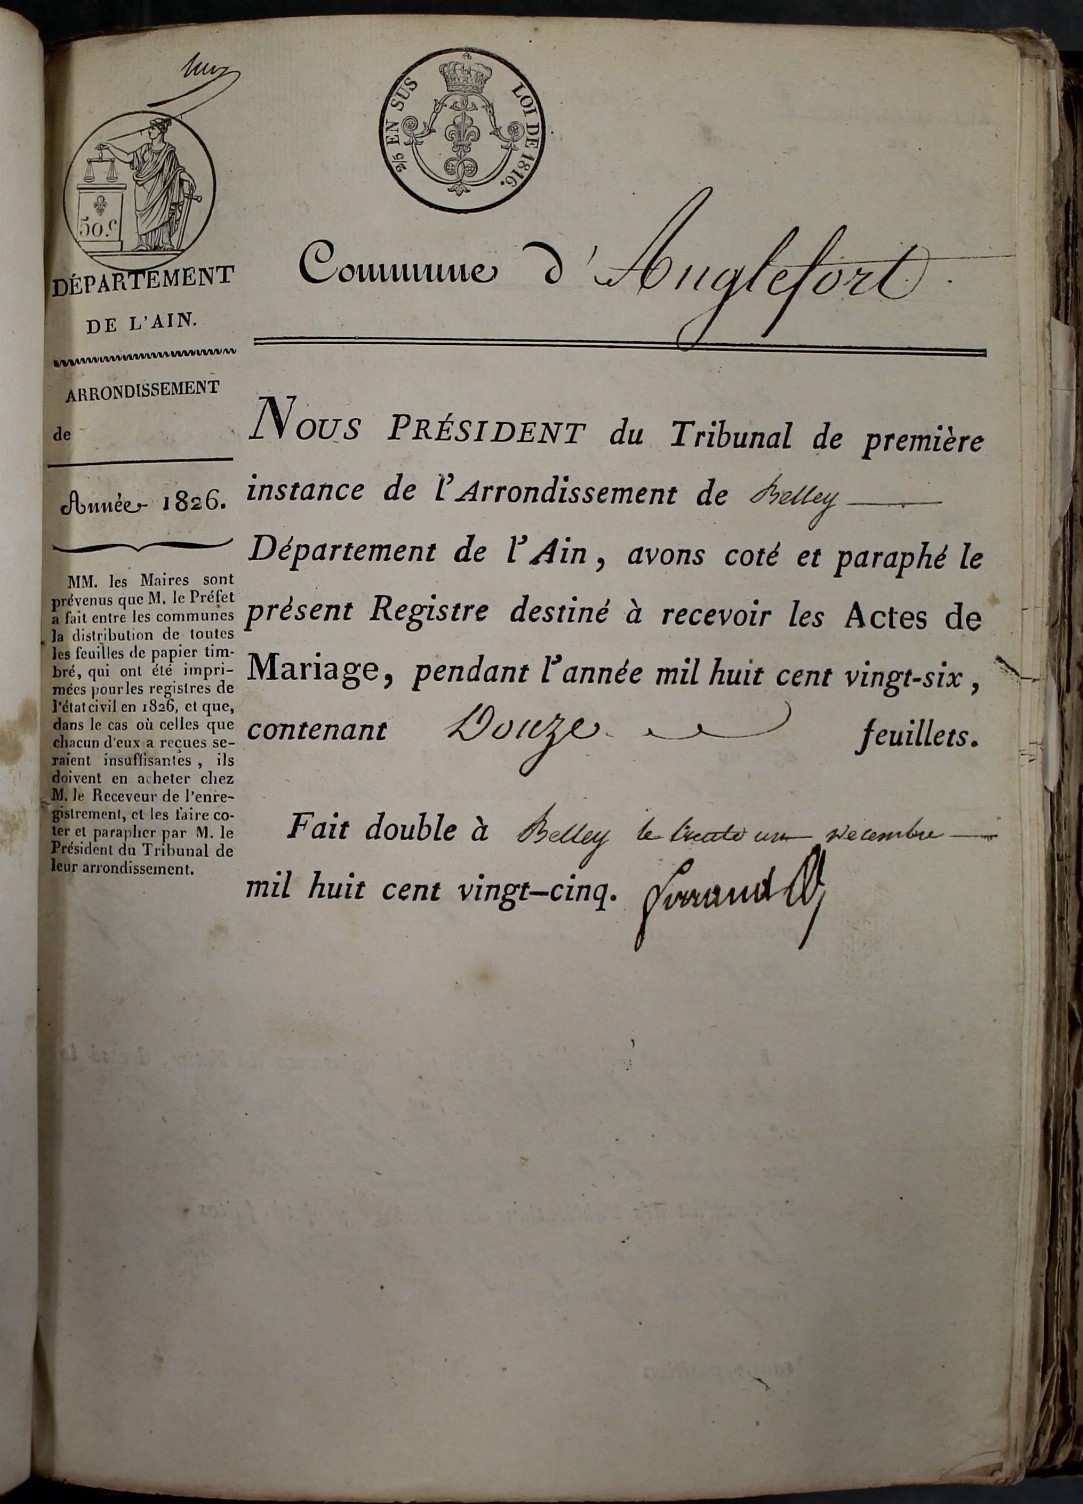 2/5 EN SUS LOI DE 1816.
50.c
DÉPARTEMENT
DE L'AIN.
ARRONDISSEMENT
de
Année 1826.
MM. les Maires sont
prévenus que M. le Préfet
a fait entre les communes
la distribution de toutes
les feuilles de papier tim-
bré, qui ont été impri-
mées pour les registres de
l'état civil en 1826, et que,
dans le cas où celles que
chacun d'eux a reçues se-
raient insuffisantes, ils
doivent en acheter chez
M. le Receveur de l'enre-
gistrement, et les faire co-
ter et parapher par M. le
Président du Tribunal de
leur arrondissement.
Commune d'Anglefort.
NOUS PRÉSIDENT du Tribunal de première
instance de l'Arrondissement de Belley
Département de l'Ain, avons coté et paraphé le
présent Registre destiné à recevoir les Actes de
Mariage, pendant l'année mil huit cent vingt-six,
contenant Douze feuillets.
Fait double à Belley le trente un Decembre
mil huit cent vingt-cinq.